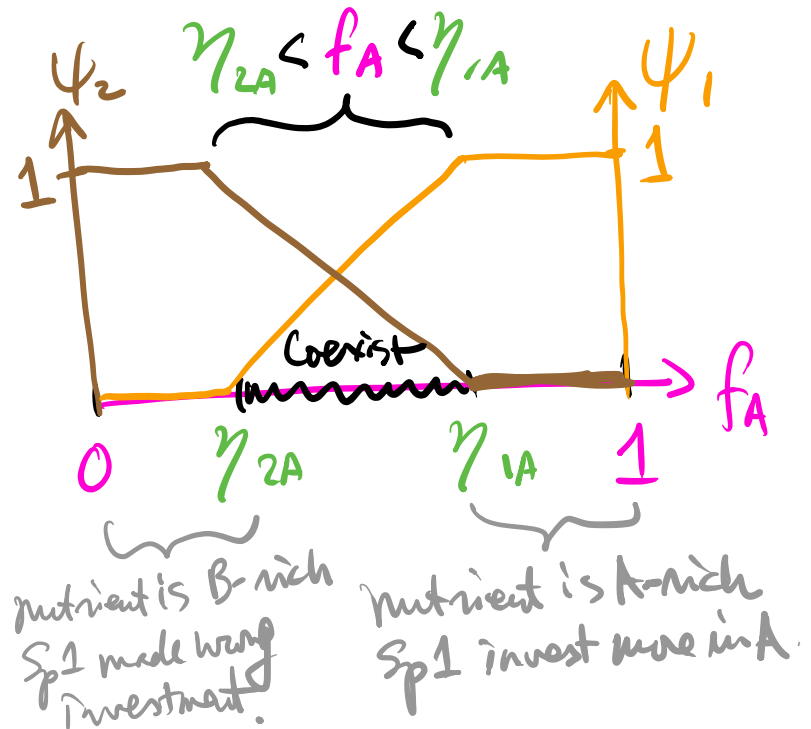 η₂A < fA < η₁A
ψ₂
ψ₁
1
1
Coexist
fA
0
η₂A
η₁A
1
nutrient is B-rich
Sp1 made wrong
investment.
nutrient is A-rich
Sp1 invest more in A.